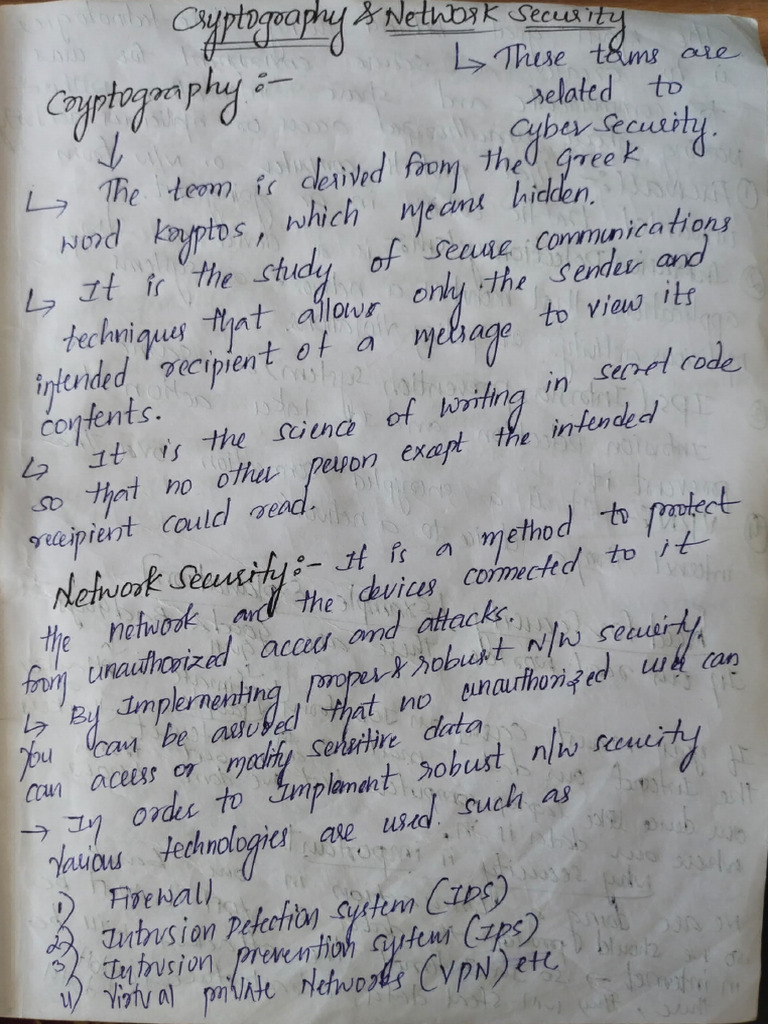 Cryptography & Network Security
↳ These terms are
related to
Cyber Security.
Cryptography :-
↓
↳ The term is derived from the Greek
word kryptos, which means hidden.
↳ It is the study of secure communications
techniques that allows only the sender and
intended recipient of a message to view its
contents.
↳ It is the science of writing in secret code
so that no other person except the intended
receipient could read.
Network Security :- It is a method to protect
the network and the devices connected to it
from unauthorized access and attacks.
↳ By Implementing proper & robust N/W security,
you can be assured that no unauthorized user can
can acess or modify sensitive data
→ In order to Implement robust n/w security
various technologies are used such as
1) Firewall
2) Intrusion Detection System (IDS)
3) Intrusion prevention system (IPS)
4) Virtual private Networks (VPN) etc